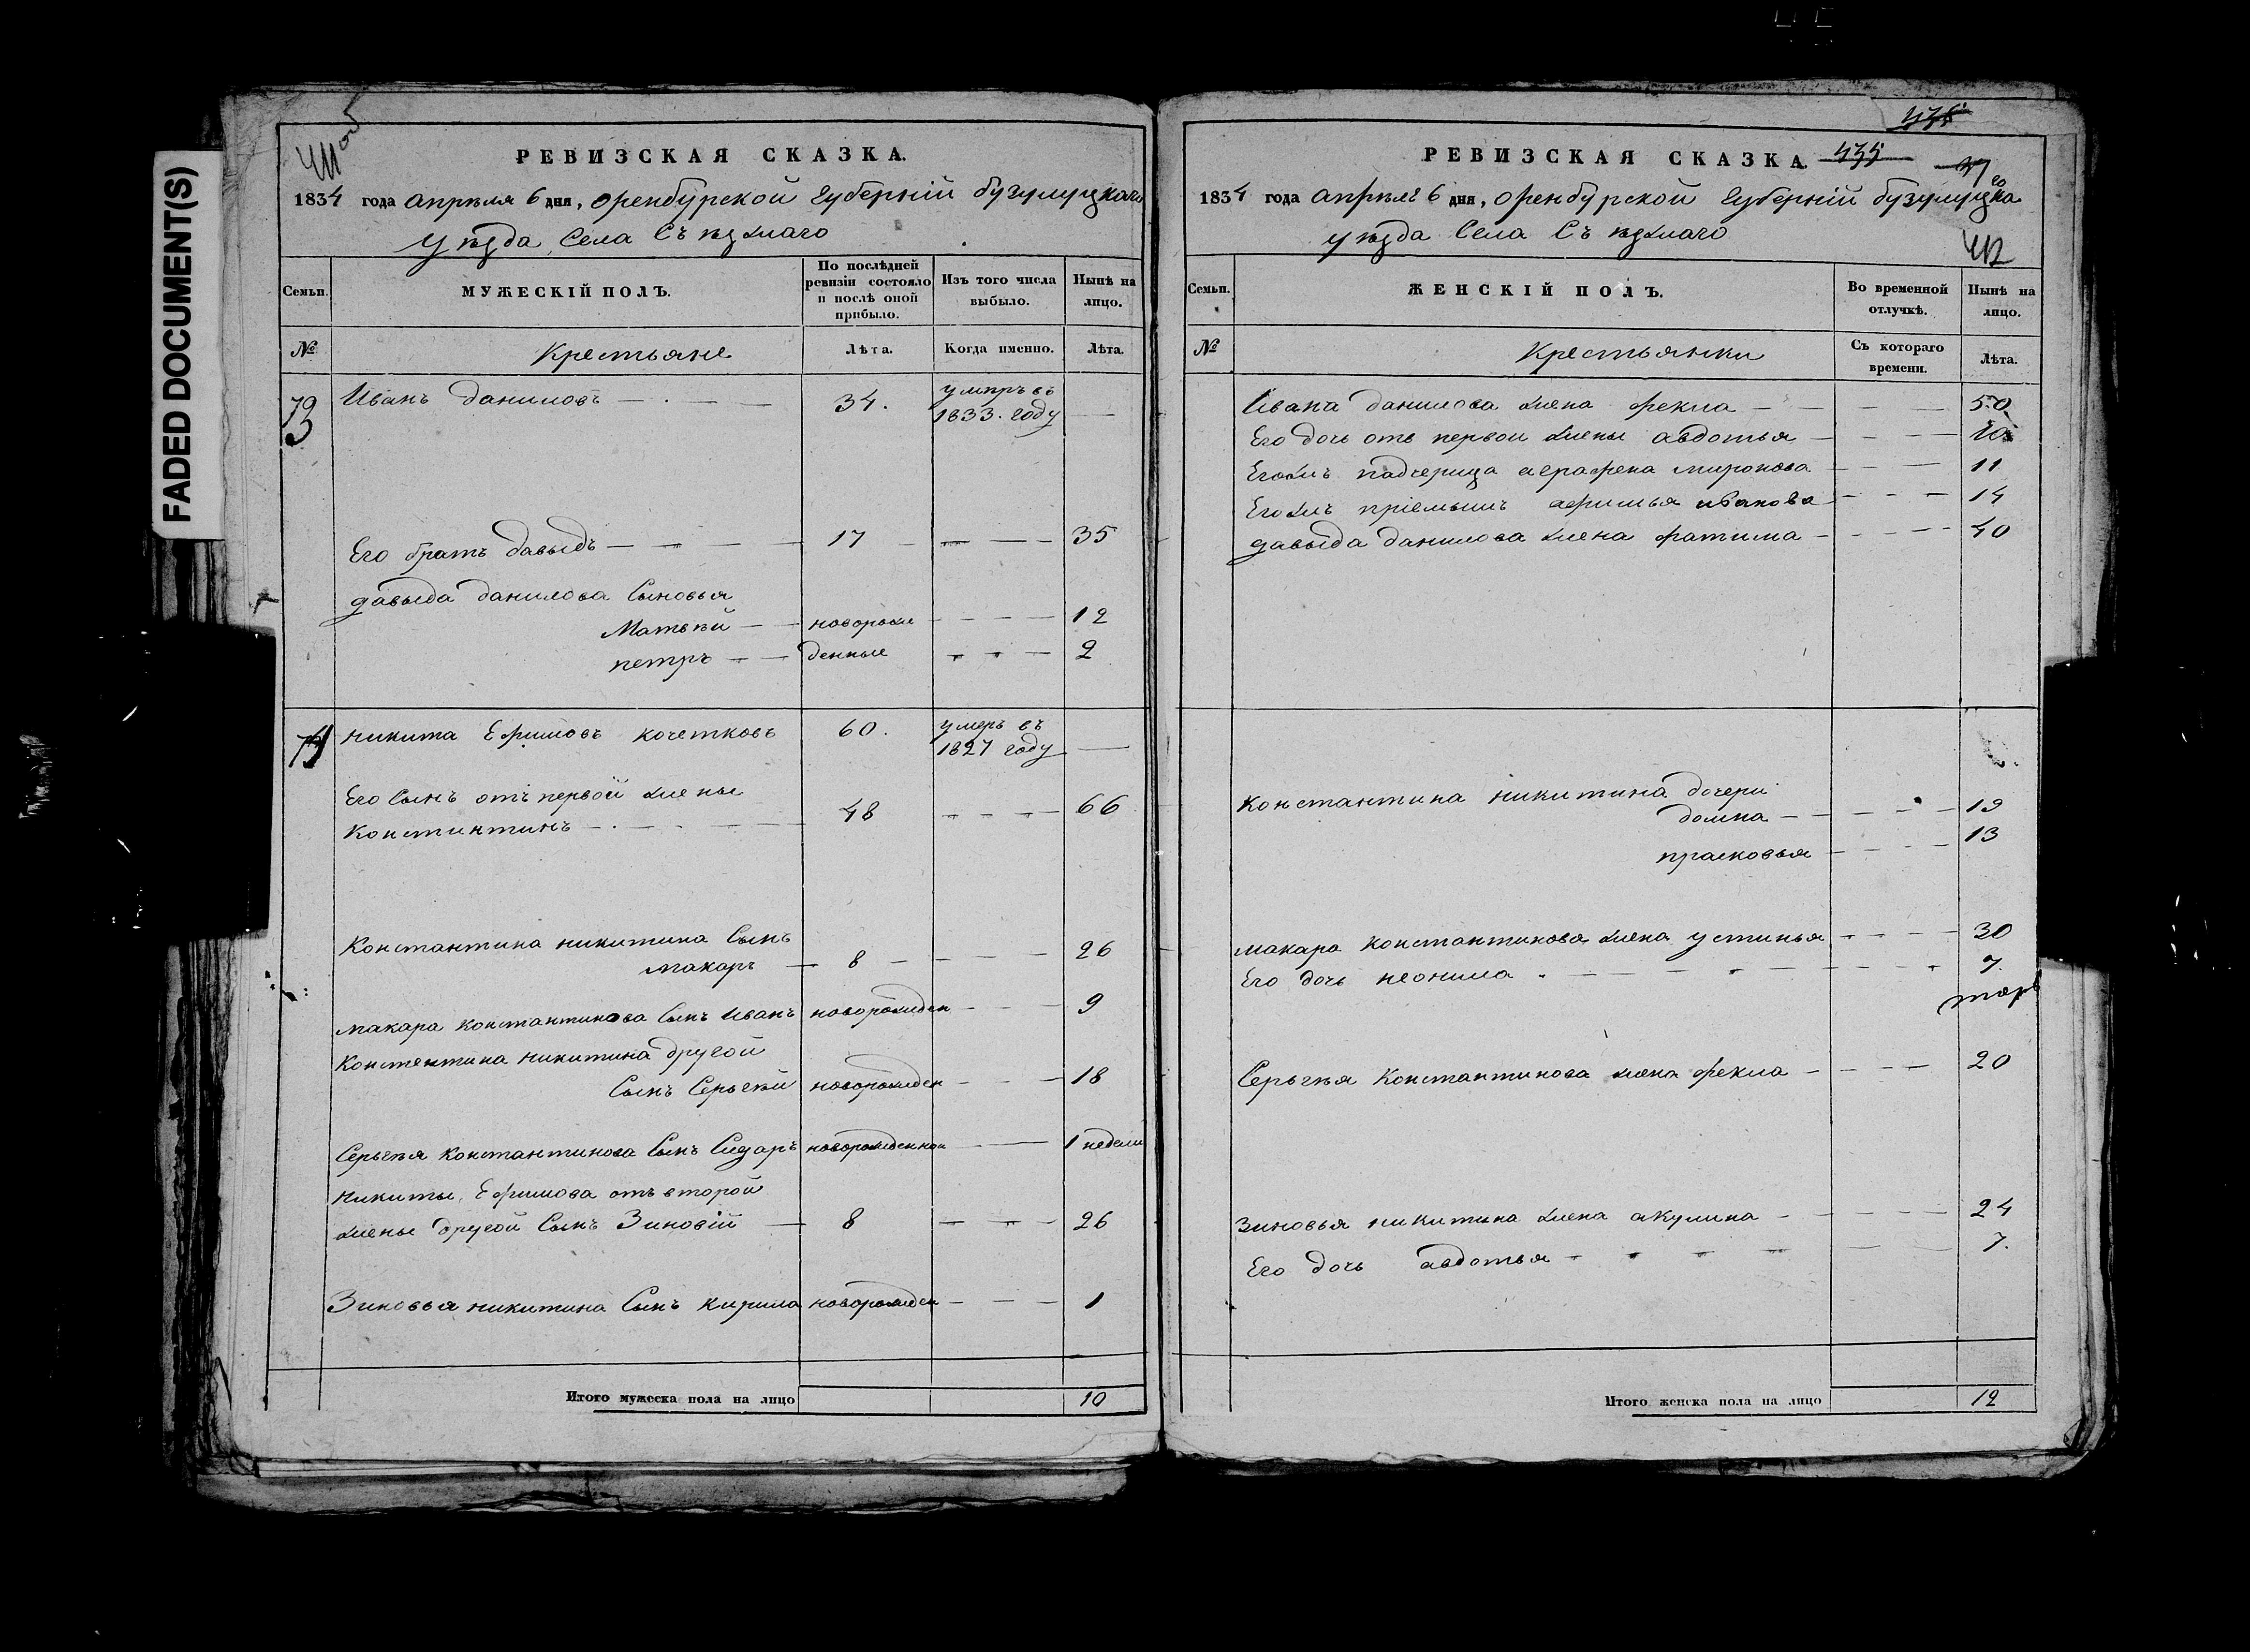 FADED DOCUMENT(S)
РЕВИЗСКАЯ СКАЗКА.
1834 года апреля 6 дня, оренбурской губерніи бузулуцкаго
уѣзда Села Съѣзжаго
Семьи.
МУЖЕСКІЙ ПОЛЪ.
По послѣдней ревизіи состояло и послѣ оной прибыло.
Изъ того числа выбыло.
Нынѣ на лицо.
№
Крестьяне
Лѣта.
Когда именно.
Лѣта.
73 Иванъ даниловъ — 34. умиръ въ 1833. году —
Его братъ давыдъ — 17 — 35
давыда данилова Сыновья
Матвѣй — новорож — 12
петръ — денные — 2
74 никита Ефимовъ кочетковъ 60. умеръ въ 1827 году —
Его Сынъ отъ первой жены
Константинъ — 48 — 66
Константина никитина Сынъ
макаръ — 8 — 26
макара константинова Сынъ Иванъ новорожден — 9
Константина никитина другой
Сынъ Сергѣй новорожден — 18
Сергѣя константинова Сынъ Сидаръ новорожденной — 1 недели
никиты Ефимова отъ второй
жены другой Сынъ Зиновій — 8 — 26
Зиновья никитина Сынъ кирила новорожден — 1
Итого мужеска пола на лицо 10
435
РЕВИЗСКАЯ СКАЗКА.
1834 года апреля 6 дня, оренбурской губерніи бузулуцкаго
уѣзда Села Съѣзжаго
412
Семьи.
ЖЕНСКІЙ ПОЛЪ.
Во временной отлучкѣ.
Нынѣ на лицо.
№
Крестьянки
Съ котораго времени.
Лѣта.
Ивана данилова жена фекла — 50
Его дочь отъ первои жены авдотья —
Егожъ падчерица аграфена миронова — 11
Егожъ пріемышъ афимья иванова — 14
давыда данилова жена фатима — 40
Константина никитина дочери
домна — 19
прасковья — 13
макара константинова жена устинья — 30
Его дочь неонила — 7.
Сергѣя Константинова жена фекла — 20
Зиновья никитина жена акулина — 24
Его дочь авдотья — 7.
Итого женска пола на лицо 12